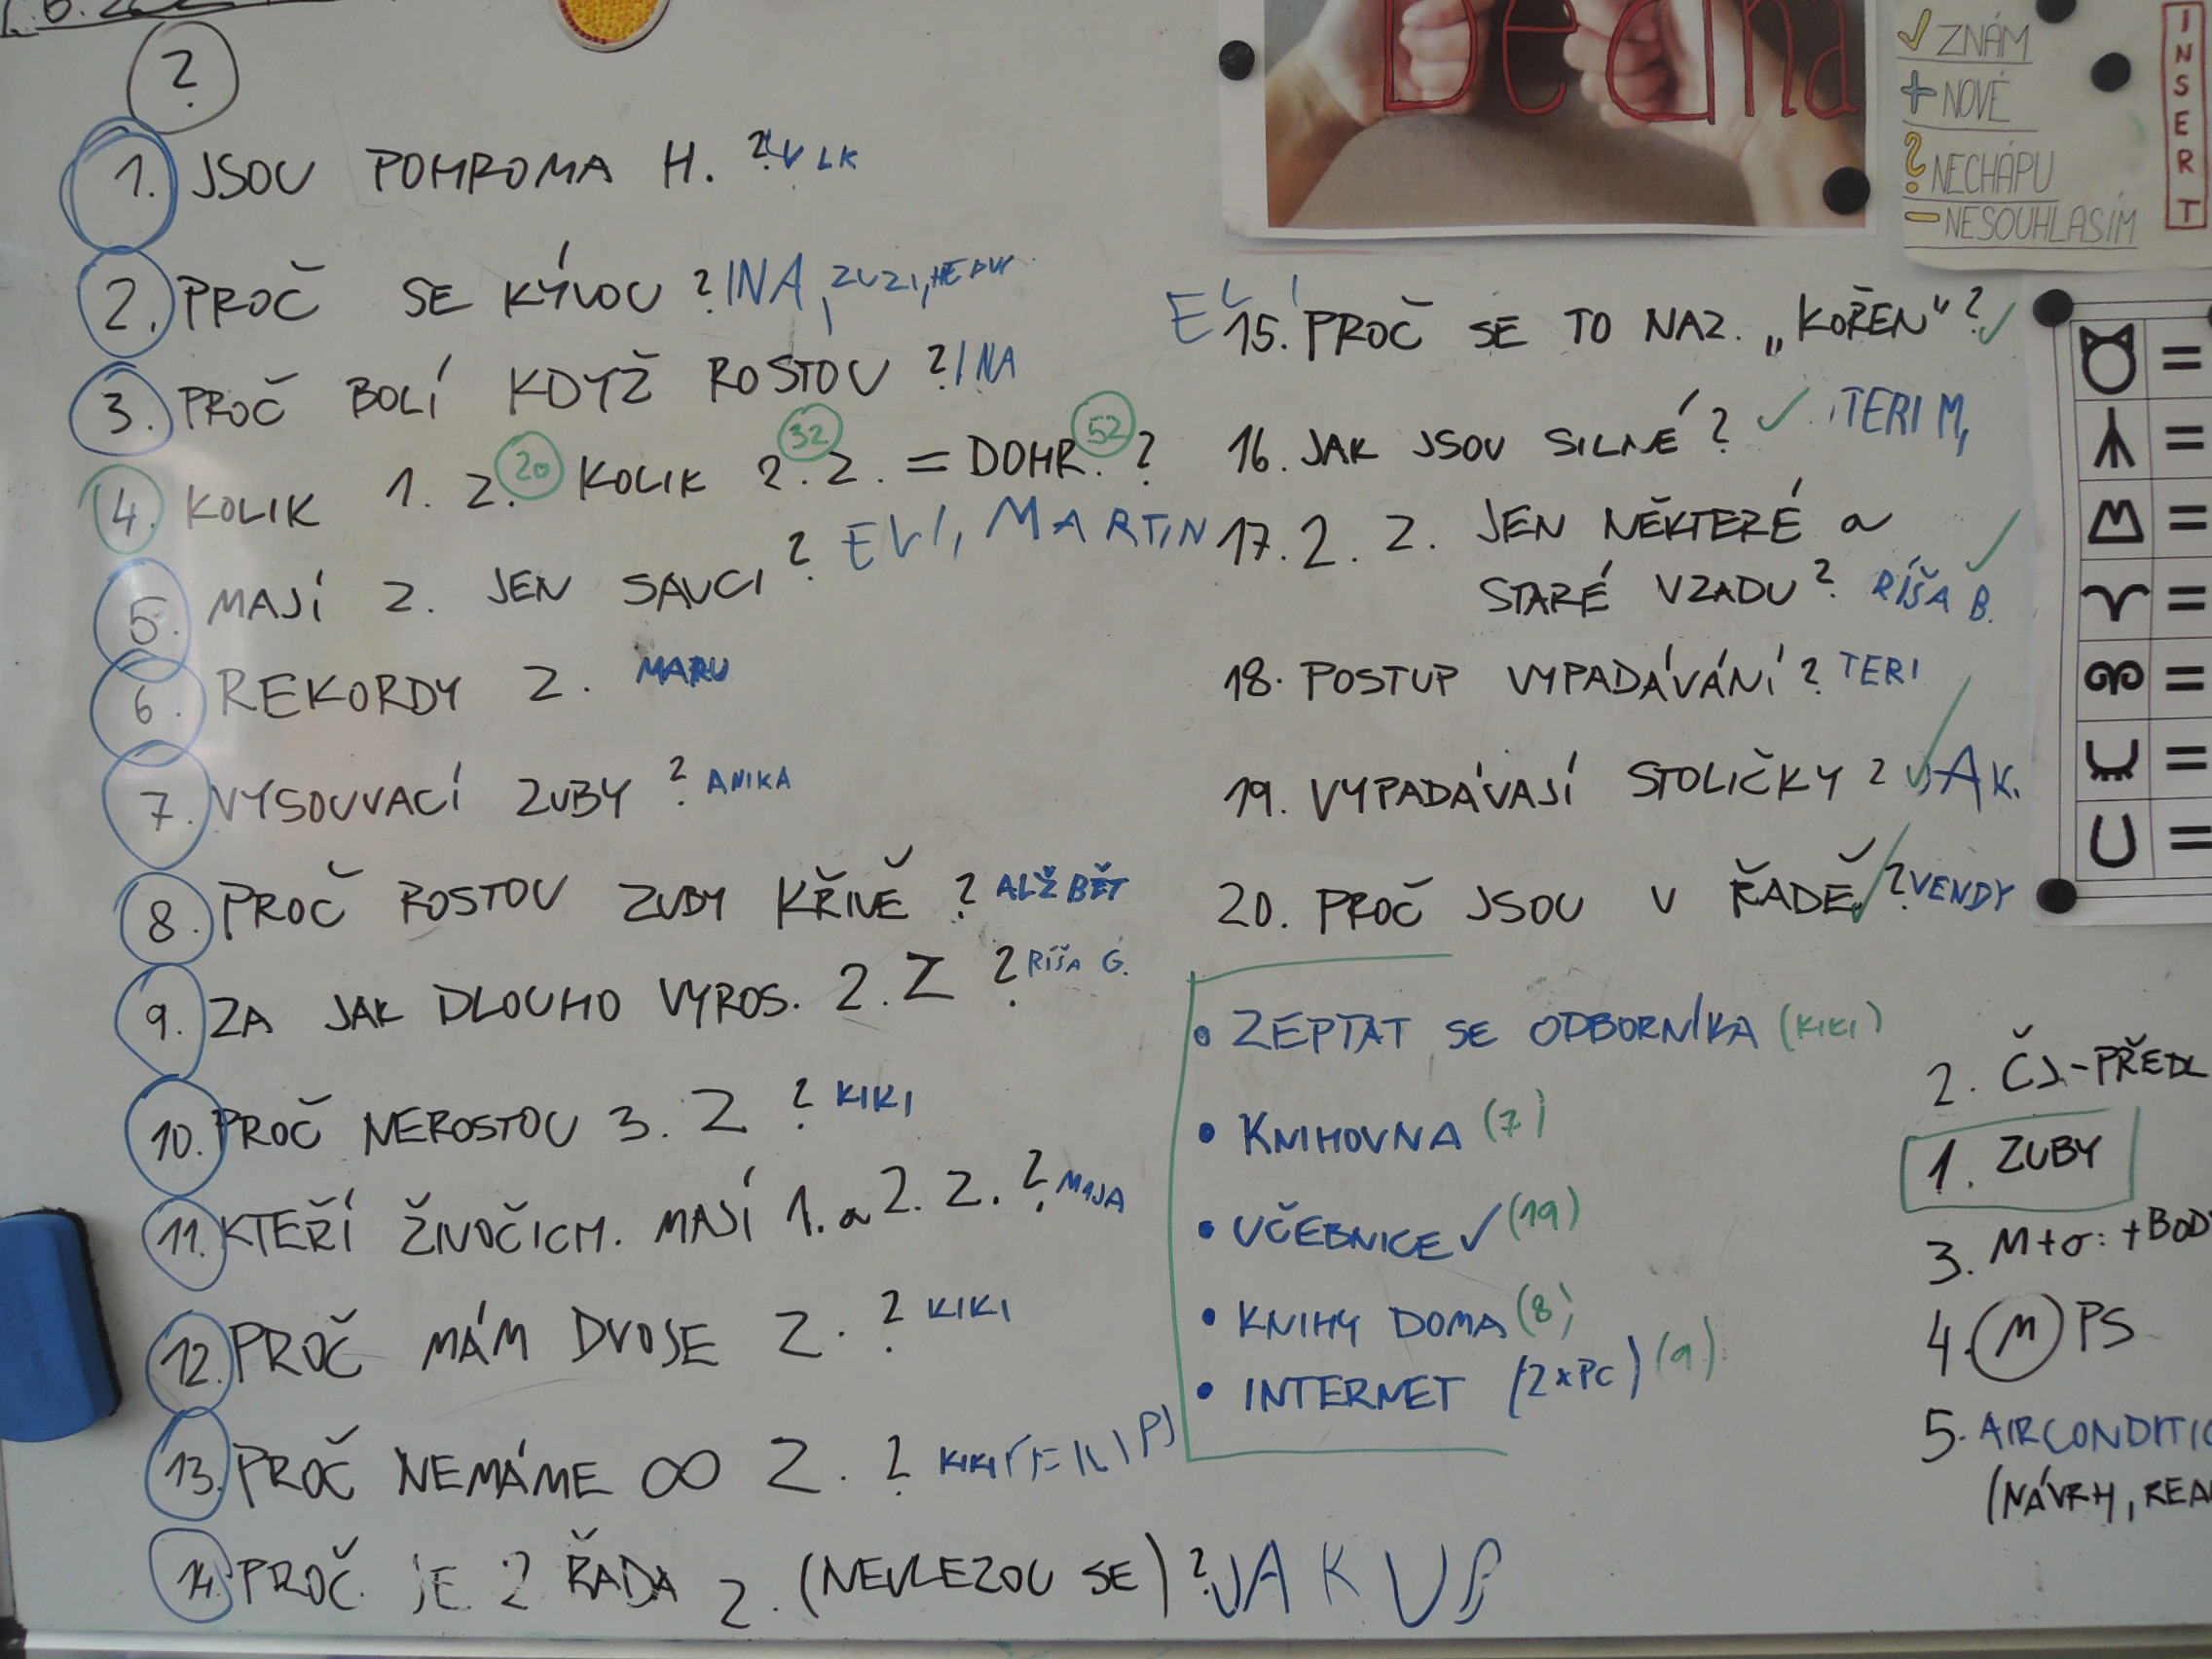 ?
1. JSOU POHROMA H. ? VLK
2. PROČ SE KÝVOU ? INA, ZUZI, HEDVI
3. PROČ BOLÍ KDYŽ ROSTOU ? INA
4. KOLIK 1. Z. 20 KOLIK 2. Z. 32 = DOHR. 52 ?
5. MAJÍ Z. JEN SAVCI ? EVI, MARTIN
6. REKORDY Z. MARU
7. VYSOUVACÍ ZUBY ? ANIKA
8. PROČ ROSTOU ZUBY KŘIVĚ ? ALŽBĚT
9. ZA JAK DLOUHO VYROS. 2. Z ? RÍŠA G.
10. PROČ NEROSTOU 3. Z ? KIKI
11. KTEŘÍ ŽIVOČICH. MAJÍ 1. a 2. Z. ? MAJA
12. PROČ MÁM DVOJE Z. ? KIKI
13. PROČ NEMÁME ∞ Z. ? KIKI
14. PROČ JE 2 ŘADA Z. (NEVLEZOU SE) ? JAKUB
15. PROČ SE TO NAZ. „KOŘEN“ ? ✓
16. JAK JSOU SILNÉ ? ✓ TERI M,
17. 2. Z. JEN NĚKTERÉ a ✓
STARÉ VZADU ? RÍŠA B.
18. POSTUP VYPADÁVÁNÍ ? TERI
19. VYPADÁVAJÍ STOLIČKY ? ✓ JAK.
20. PROČ JSOU V ŘADĚ ✓ ? VENDY
• ZEPTAT SE ODBORNÍKA (KIKI)
• KNIHOVNA (7)
• UČEBNICE ✓ (19)
• KNIHY DOMA (8)
• INTERNET (2xPC) (9)
Dědina
✓ ZNÁM
+ NOVÉ
? NECHÁPU
– NESOUHLASÍM
INSERT
=
=
=
=
=
=
=
2. ČJ-PŘEDL
1. ZUBY
3. M+σ: +BODY
4. M PS
5. AIRCONDITIO
(NÁVRH, REA